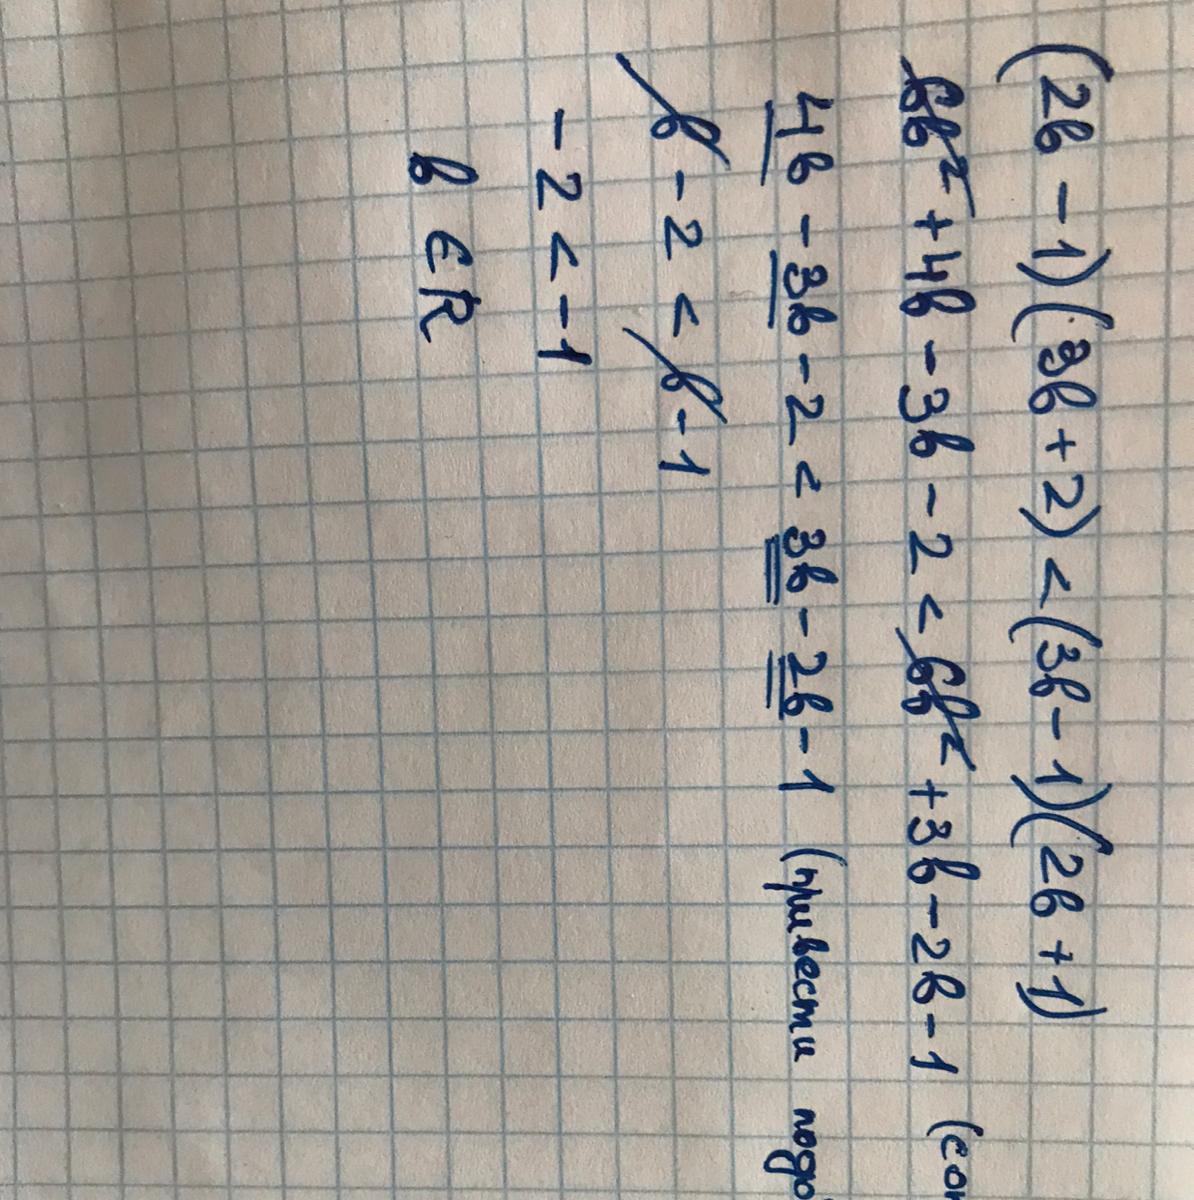 (2b - 1)(3b + 2) < (3b - 1)(2b + 1)
6b² + 4b - 3b - 2 < 6b² + 3b - 2b - 1
4b - 3b - 2 < 3b - 2b - 1 (привести
b - 2 < b - 1
- 2 < - 1
b ∈ R